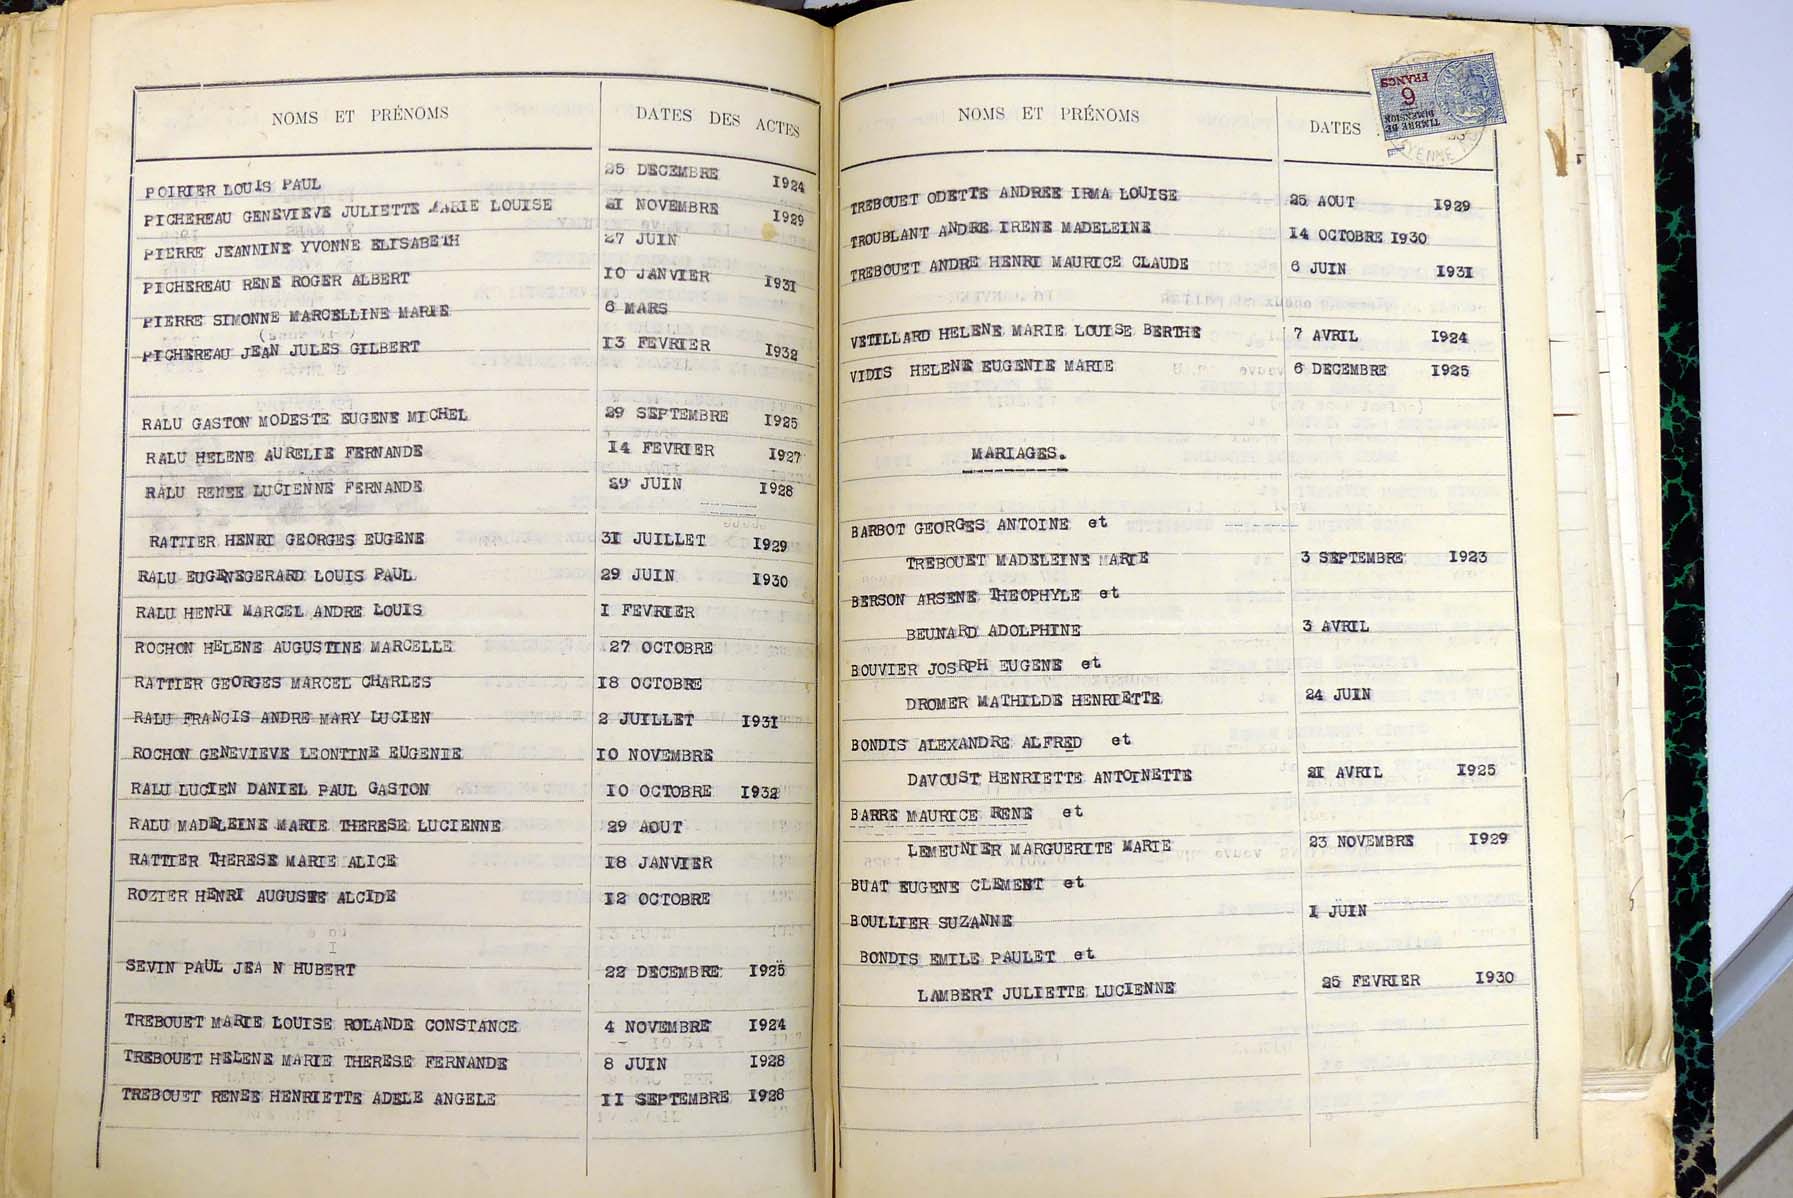 NOMS ET PRÉNOMS DATES DES ACTES
POIRIER LOUIS PAUL 25 DECEMBRE 1924
PICHEREAU GENEVIEVE JULIETTE MARIE LOUISE 21 NOVEMBRE 1929
PIERRE JEANNINE YVONNE ELISABETH 27 JUIN
PICHEREAU RENE ROGER ALBERT 10 JANVIER 1931
PIERRE SIMONNE MARCELLINE MARIE 6 MARS
PICHEREAU JEAN JULES GILBERT 13 FEVRIER 1932
RALU GASTON MODESTE EUGENE MICHEL 29 SEPTEMBRE 1925
RALU HELENE AURELIE FERNANDE 14 FEVRIER 1927
RALU RENEE LUCIENNE FERNANDE 29 JUIN 1928
RATTIER HENRI GEORGES EUGENE 31 JUILLET 1929
RALU EUGENEGERARD LOUIS PAUL 29 JUIN 1930
RALU HENRI MARCEL ANDRE LOUIS 1 FEVRIER
ROCHON HELENE AUGUSTINE MARCELLE 27 OCTOBRE
RATTIER GEORGES MARCEL CHARLES 18 OCTOBRE
RALU FRANCIS ANDRE MARY LUCIEN 2 JUILLET 1931
ROCHON GENEVIEVE LEONTINE EUGENIE 10 NOVEMBRE
RALU LUCIEN DANIEL PAUL GASTON 10 OCTOBRE 1932
RALU MADELEINE MARIE THERESE LUCIENNE 29 AOUT
RATTIER THERESE MARIE ALICE 18 JANVIER
ROZIER HENRI AUGUSTE ALCIDE 12 OCTOBRE
SEVIN PAUL JEA N HUBERT 22 DECEMBRE 1925
TREBOUET MARIE LOUISE ROLANDE CONSTANCE 4 NOVEMBRE 1924
TREBOUET HELENE MARIE THERESE FERNANDE 8 JUIN 1928
TREBOUET RENEE HENRIETTE ADELE ANGELE 11 SEPTEMBRE 1928
NOMS ET PRÉNOMS DATES
TIMBRE DE
DIMENSION
6
FRANCS
TREBOUET ODETTE ANDREE IRMA LOUISE 25 AOUT 1929
TROUBLANT ANDRE IRENE MADELEINE 14 OCTOBRE 1930
TREBOUET ANDRE HENRI MAURICE CLAUDE 6 JUIN 1931
VETILLARD HELENE MARIE LOUISE BERTHE 7 AVRIL 1924
VIDIS HELENE EUGENIE MARIE 6 DECEMBRE 1925
MARIAGES.
BARBOT GEORGES ANTOINE et
TREBOUET MADELEINE MARIE 3 SEPTEMBRE 1923
BERSON ARSENE THEOPHYLE et
BEUNARD ADOLPHINE 3 AVRIL
BOUVIER JOSRPH EUGENE et
DROMER MATHILDE HENRIETTE 24 JUIN
BONDIS ALEXANDRE ALFRED et
DAVOUST HENRIETTE ANTOINETTE 21 AVRIL 1925
BARRE MAURICE RENE et
LEMEUNIER MARGUERITE MARIE 23 NOVEMBRE 1929
BUAT EUGENE CLEMENT et
BOULLIER SUZANNE 1 JUIN
BONDIS EMILE PAULET et
LAMBERT JULIETTE LUCIENNE 25 FEVRIER 1930